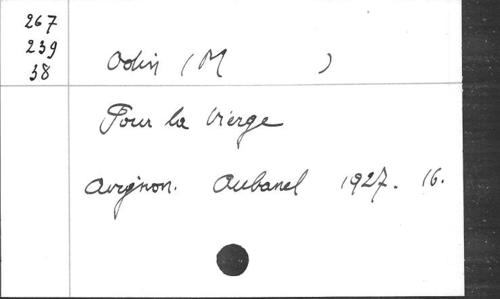 267
239
38
Odin (M )
Pour la Vierge
Avignon. Aubanel 1927. 16.